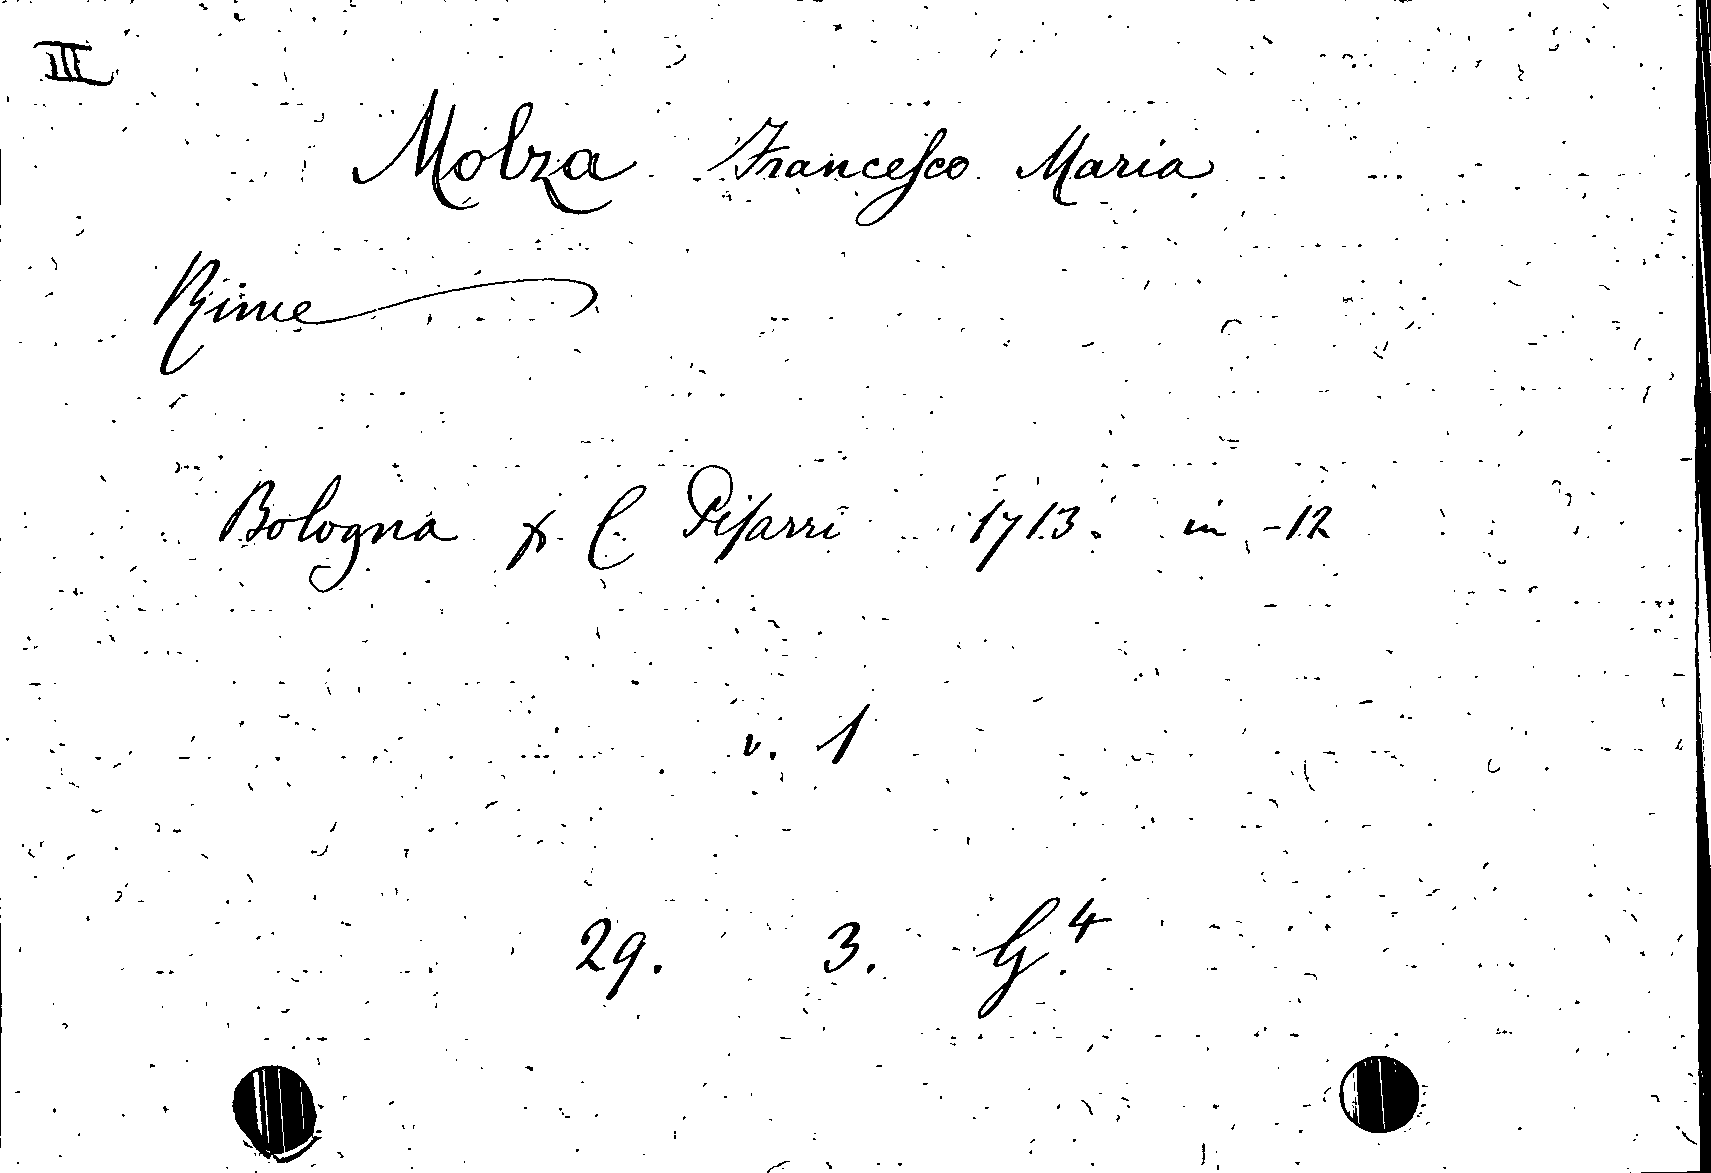 III
Molza Francesco Maria
Rime
Bologna p. C. Pisarri 1713. in -12
v. 1
29. 3. G.4